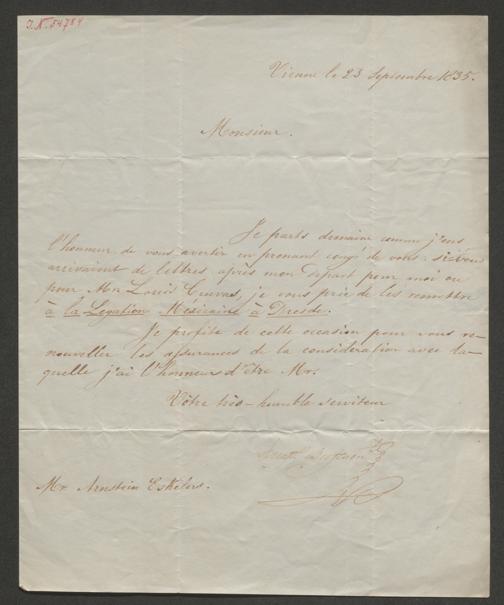 I.N. 54784
Vienne le 23 Septembre 1835.
Monsieur.
Je parts demaine comme j'eus
l'honneur de vous avertir en prenant congé de vous: si vous
arrivaint de lettres après mon départ pour moi ou
pour Mr. Louis Cuevas, je vous prie de les remettre
à la Légation Méxicaine à Dresde.
Je profite de cette occasion pour vous re-
nouveller les assurances de la considération avec la-
quelle j'ai l'honneur d'être Mr.
Vôtre très-humble serviteur
Mr Arnstein Eskelers.